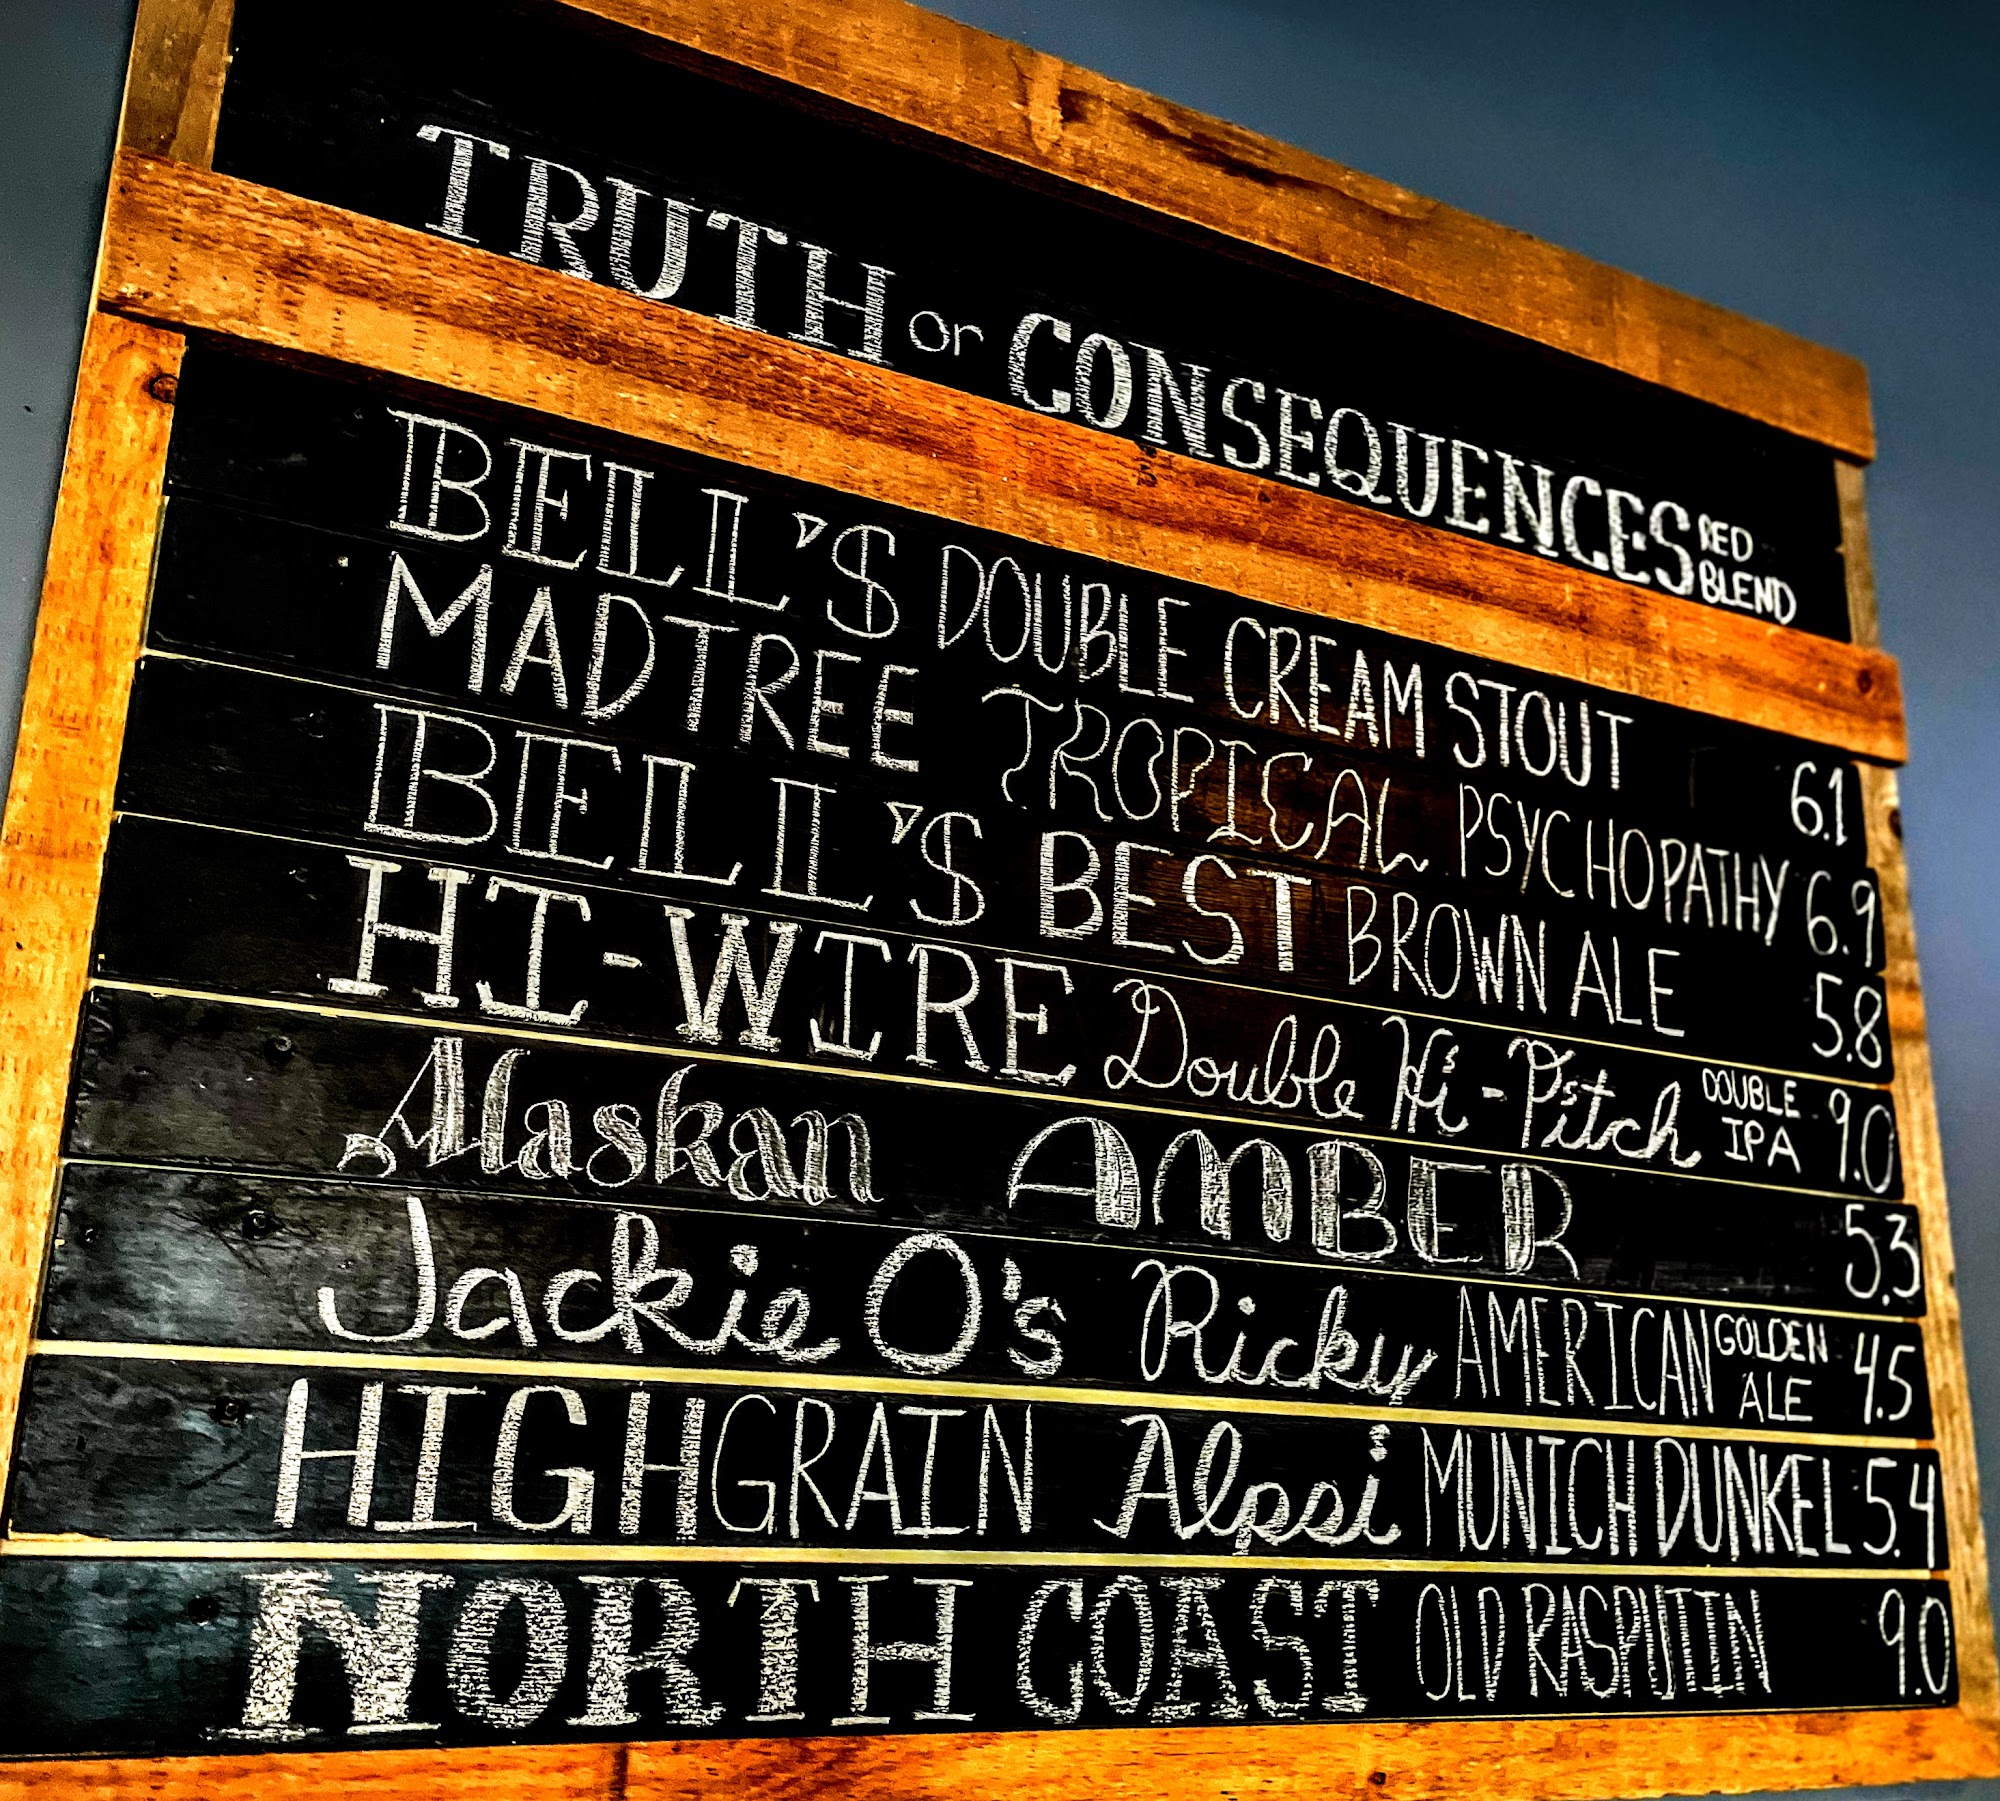 TRUTH or CONSEQUENCES RED BLEND
BELL'S DOUBLE CREAM STOUT 6.1
MADTREE TROPICAL PSYCHOPATHY 6.9
BELL'S BEST BROWN ALE 5.8
HI-WIRE Double Hi-Pitch DOUBLE IPA 9.0
Alaskan AMBER 5.3
Jackie O's Ricky AMERICAN GOLDEN ALE 4.5
HIGHGRAIN Alpsi MUNICH DUNKEL 5.4
NORTH COAST OLD RASPUTIN 9.0